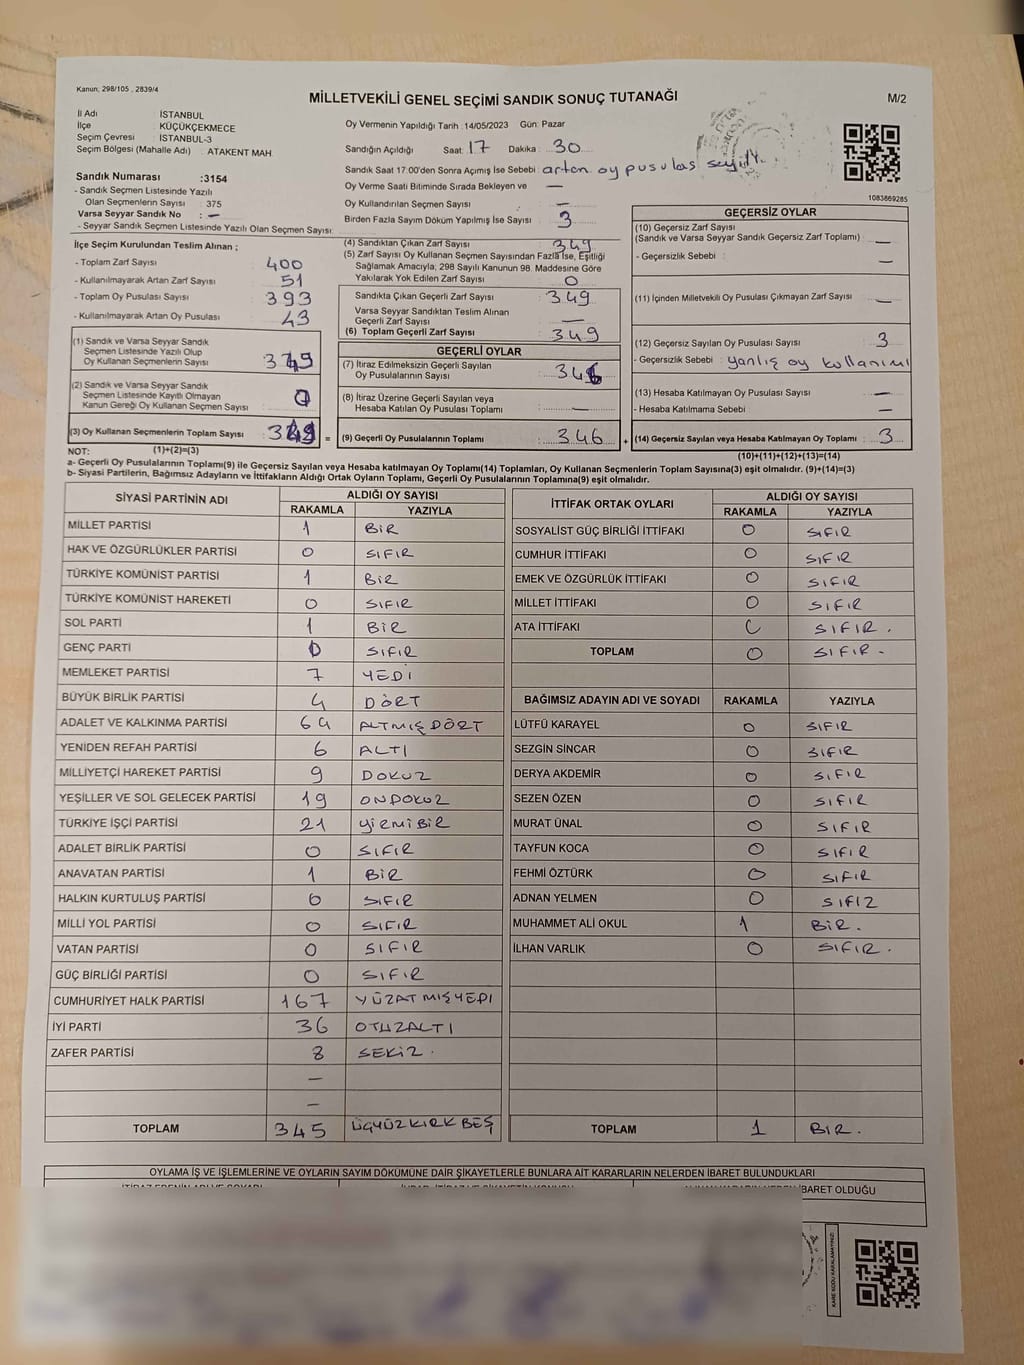 Kanun; 298/105 , 2839/4
MİLLETVEKİLİ GENEL SEÇİMİ SANDIK SONUÇ TUTANAĞI
M/2
İl Adı İSTANBUL
İlçe KÜÇÜKÇEKMECE
Seçim Çevresi İSTANBUL-3
Seçim Bölgesi (Mahalle Adı) : ATAKENT MAH
Sandık Numarası :3154
- Sandık Seçmen Listesinde Yazılı
Olan Seçmenlerin Sayısı : 375
Varsa Seyyar Sandık No : —
- Seyyar Sandık Seçmen Listesinde Yazılı Olan Seçmen Sayısı:
Oy Vermenin Yapıldığı Tarih :14/05/2023 Gün: Pazar
Sandığın Açıldığı Saat: 17 Dakika : 30
Sandık Saat 17:00'den Sonra Açımış İse Sebebi : artan oy pusulas sayım.
Oy Verme Saati Bitiminde Sırada Bekleyen ve —
Oy Kullandırılan Seçmen Sayısı : —
Birden Fazla Sayım Döküm Yapılmış İse Sayısı : 3
1083869285
İlçe Seçim Kurulundan Teslim Alınan ;
- Toplam Zarf Sayısı : 400
- Kullanılmayarak Artan Zarf Sayısı : 51
- Toplam Oy Pusulası Sayısı : 393
- Kullanılmayarak Artan Oy Pusulası : 43
(1) Sandık ve Varsa Seyyar Sandık
Seçmen Listesinde Yazılı Olup
Oy Kullanan Seçmenlerin Sayısı : 349
(2) Sandık ve Varsa Seyyar Sandık
Seçmen Listesinde Kayıtlı Olmayan
Kanun Gereği Oy Kullanan Seçmen Sayısı : 0
(3) Oy Kullanan Seçmenlerin Toplam Sayısı : 349
(1)+(2)=(3)
(4) Sandıktan Çıkan Zarf Sayısı : 349
(5) Zarf Sayısı Oy Kullanan Seçmen Sayısından Fazla İse, Eşitliği
Sağlamak Amacıyla, 298 Sayılı Kanunun 98. Maddesine Göre
Yakılarak Yok Edilen Zarf Sayısı : 0
Sandıkta Çıkan Geçerli Zarf Sayısı : 349
Varsa Seyyar Sandıktan Teslim Alınan
Geçerli Zarf Sayısı : —
(6) Toplam Geçerli Zarf Sayısı : 349
GEÇERLİ OYLAR
(7) İtiraz Edilmeksizin Geçerli Sayılan
Oy Pusulalarının Sayısı : 346
(8) İtiraz Üzerine Geçerli Sayılan veya
Hesaba Katılan Oy Pusulası Toplamı : —
= (9) Geçerli Oy Pusulalarının Toplamı : 346
GEÇERSİZ OYLAR
(10) Geçersiz Zarf Sayısı
(Sandık ve Varsa Seyyar Sandık Geçersiz Zarf Toplamı) : —
- Geçersizlik Sebebi : —
(11) İçinden Milletvekili Oy Pusulası Çıkmayan Zarf Sayısı : —
(12) Geçersiz Sayılan Oy Pusulası Sayısı : 3
- Geçersizlik Sebebi : yanlış oy kullanımı
(13) Hesaba Katılmayan Oy Pusulası Sayısı : —
- Hesaba Katılmama Sebebi : —
+ (14) Geçersiz Sayılan veya Hesaba Katılmayan Oy Toplamı : 3
(10)+(11)+(12)+(13)=(14)
NOT:
a- Geçerli Oy Pusulalarının Toplamı(9) ile Geçersiz Sayılan veya Hesaba katılmayan Oy Toplamı(14) Toplamları, Oy Kullanan Seçmenlerin Toplam Sayısına(3) eşit olmalıdır. (9)+(14)=(3)
b- Siyasi Partilerin, Bağımsız Adayların ve İttifakların Aldığı Ortak Oyların Toplamı, Geçerli Oy Pusulalarının Toplamına(9) eşit olmalıdır.
SİYASİ PARTİNİN ADI ALDIĞI OY SAYISI
RAKAMLA YAZIYLA
MİLLET PARTİSİ 1 BİR
HAK VE ÖZGÜRLÜKLER PARTİSİ 0 SIFIR
TÜRKİYE KOMÜNİST PARTİSİ 1 BİR
TÜRKİYE KOMÜNİST HAREKETİ 0 SIFIR
SOL PARTİ 1 BİR
GENÇ PARTİ 0 SIFIR
MEMLEKET PARTİSİ 7 YEDİ
BÜYÜK BİRLİK PARTİSİ 4 DÖRT
ADALET VE KALKINMA PARTİSİ 64 ALTMIŞ DÖRT
YENİDEN REFAH PARTİSİ 6 ALTI
MİLLİYETÇİ HAREKET PARTİSİ 9 DOKUZ
YEŞİLLER VE SOL GELECEK PARTİSİ 19 ONDOKUZ
TÜRKİYE İŞÇİ PARTİSİ 21 YİRMİBİR
ADALET BİRLİK PARTİSİ 0 SIFIR
ANAVATAN PARTİSİ 1 BİR
HALKIN KURTULUŞ PARTİSİ 0 SIFIR
MİLLİ YOL PARTİSİ 0 SIFIR
VATAN PARTİSİ 0 SIFIR
GÜÇ BİRLİĞİ PARTİSİ 0 SIFIR
CUMHURİYET HALK PARTİSİ 167 YÜZATMIŞYEDİ
İYİ PARTİ 36 OTUZALTI
ZAFER PARTİSİ 8 SEKİZ.
—
—
TOPLAM 345 ÜÇYÜZKIRKBEŞ
İTTİFAK ORTAK OYLARI ALDIĞI OY SAYISI
RAKAMLA YAZIYLA
SOSYALİST GÜÇ BİRLİĞİ İTTİFAKI 0 SIFIR
CUMHUR İTTİFAKI 0 SIFIR
EMEK VE ÖZGÜRLÜK İTTİFAKI 0 SIFIR
MİLLET İTTİFAKI 0 SIFIR
ATA İTTİFAKI 0 SIFIR.
TOPLAM 0 SIFIR-
BAĞIMSIZ ADAYIN ADI VE SOYADI RAKAMLA YAZIYLA
LÜTFÜ KARAYEL 0 SIFIR
SEZGİN SİNCAR 0 SIFIR
DERYA AKDEMİR 0 SIFIR
SEZEN ÖZEN 0 SIFIR
MURAT ÜNAL 0 SIFIR
TAYFUN KOCA 0 SIFIR
FEHMİ ÖZTÜRK 0 SIFIR
ADNAN YELMEN 0 SIFIR
MUHAMMET ALİ OKUL 1 BİR.
İLHAN VARLIK 0 SIFIR.
TOPLAM 1 BIR.
OYLAMA İŞ VE İŞLEMLERİNE VE OYLARIN SAYIM DÖKÜMÜNE DAİR ŞİKAYETLERLE BUNLARA AİT KARARLARIN NELERDEN İBARET BULUNDUKLARI
İBARET OLDUĞU
KARE KODU KARALAMAYINIZ!